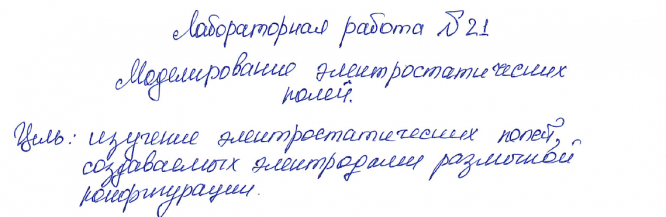 Лабораторная работа №21
Моделирование электростатических
полей.
Цель: изучение электростатических полей,
создаваемых электродами различной
конфигурации.